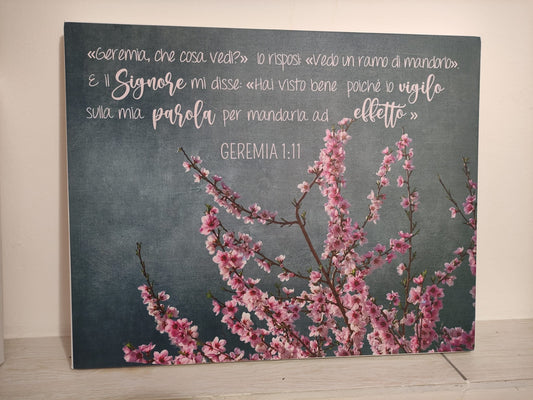 «Geremia, che cosa vedi?» Io risposi: «Vedo un ramo di mandorlo».
E il Signore mi disse: «Hai visto bene poiché io vigilo
sulla mia parola per mandarla ad effetto»
GEREMIA 1:11